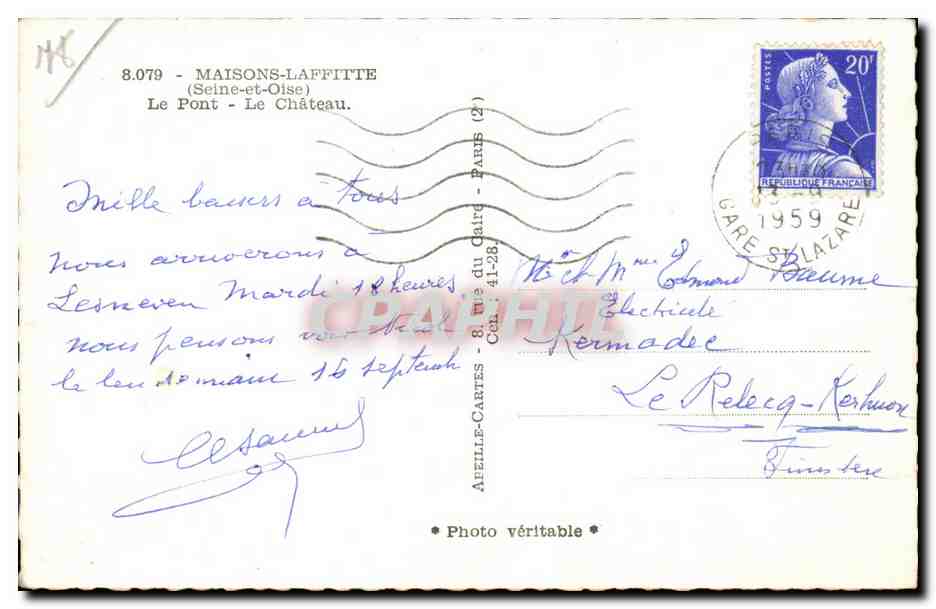 8.079 - MAISONS-LAFFITTE
(Seine-et-Oise)
Le Pont - Le Château.
Mille baisers à tous
nous arriverons à
Lesneven Mardi 18 heures
nous pensons voir
le lendemain 16 septemb
ABEILLE-CARTES - 8, rue du Caire - PARIS (2e)
Cen : 41-28.
* Photo véritable *
POSTES
20F
REPUBLIQUE FRANÇAISE
1959
GARE St LAZARE
Mr et Mme Edmond Baume
Electricité
Kermadec
Le Relecq-Kerhuon
Finistère
CPAPHIL